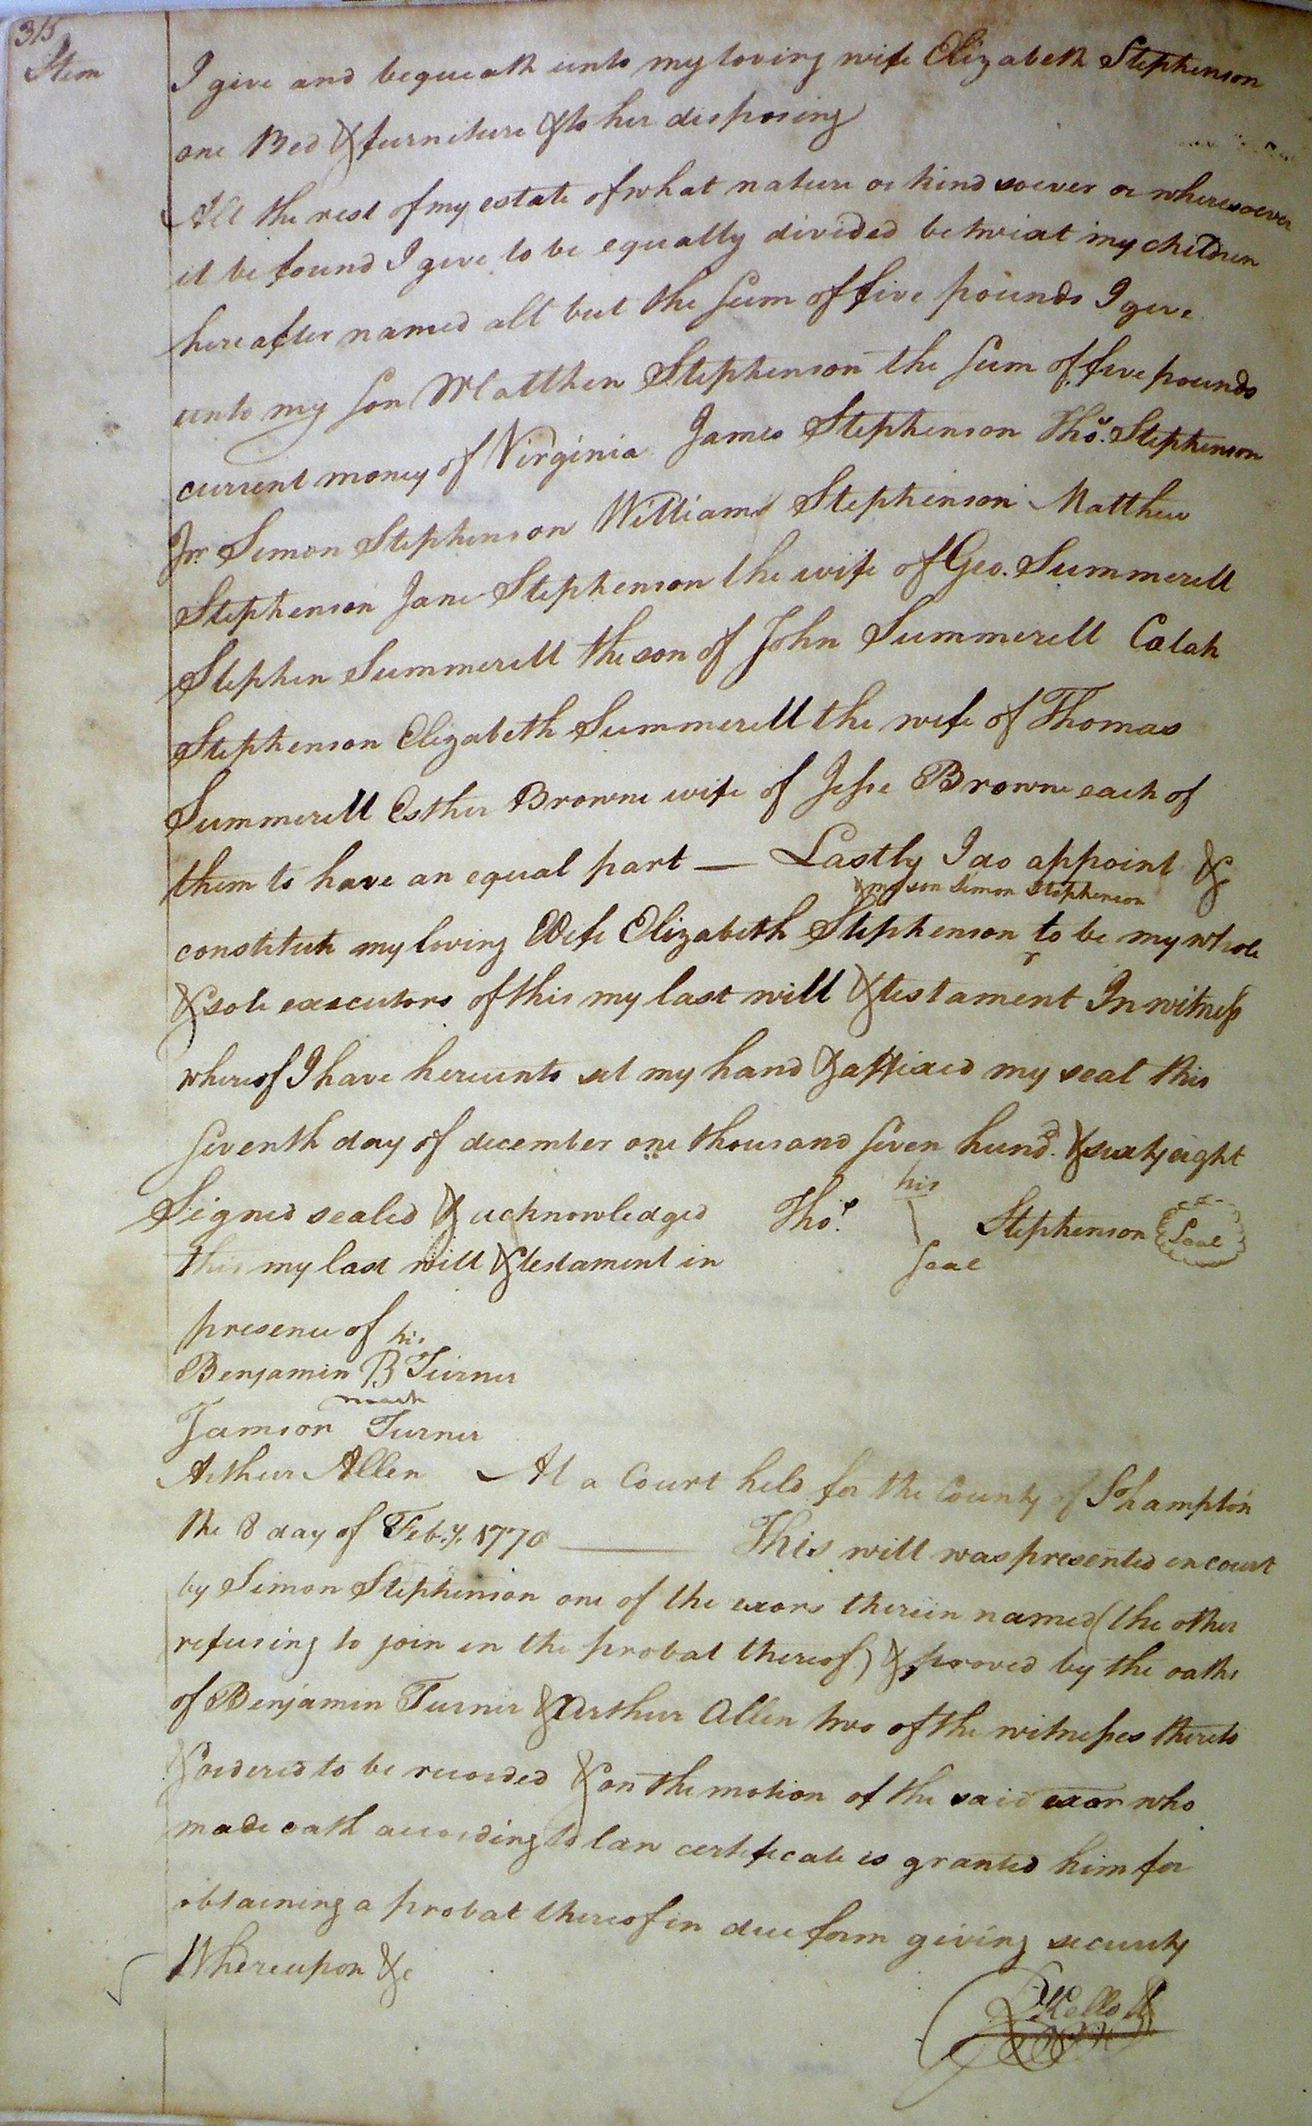 315
Item
I give and bequeath unto my loving wife Elizabeth Stephenson
one Bed & furniture & to her disposing
All the rest of my estate of what nature or kind soever or wheresoever
it be found I give to be equally divided betwixt my children
hereafter named all but the sum of five pounds I give
unto my son Matthew Stephenson the sum of five pounds
current money of Virginia James Stephenson Thos. Stephenson
Jnr. Simon Stephenson William Stephenson Matthew
Stephenson Jane Stephenson the wife of Geo. Summerell
Stephen Summerell the son of John Summerell Celah
Stephenson Elizabeth Summerell the wife of Thomas
Summerell Esther Browne wife of Jesse Browne each of
them to have an equal part — Lastly I do appoint &
& my son Simon Stephenson
constitute my loving Wife Elizabeth Stephenson to be my whole
& sole executors of this my last will & testament In witness
whereof I have hereunto set my hand & affixed my seal this
seventh day of december one thousand seven hund. & sixty eight
Signed sealed & acknowledged Thos. his Stephenson Seal
this my last will & testament in Seal
presence of his
Benjamin B Turner
mark
Jamson Turner
Arthur Allen At a Court held for the County of Shampton
the 8 day of Feb.y. 1770 — This will was presented in court
by Simon Stephenson one of the exors therein named (the other
refusing to join in the probat thereof) & proved by the oaths
of Benjamin Turner & Arthur Allen two of the witnesses thereto
& ordered to be recorded & on the motion of the said exor who
made oath according to law certificate is granted him for
obtaining a probat thereof in due form giving security
Whereupon &c
Kello